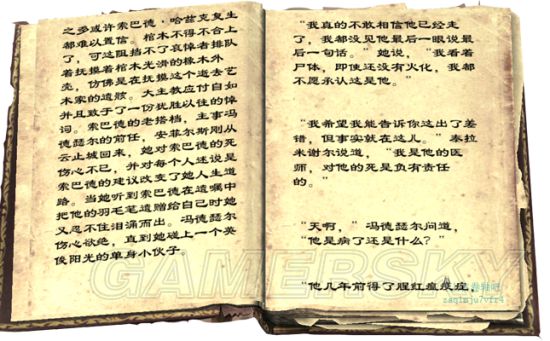 之多或许索巴德·哈兹克复生
都难以置信。棺木不得不合上
了，可这阻挡不了哀悼者排队
着抚摸着棺木光滑的橡木外
壳，仿佛是在抚摸这个逝去艺
术家的遗骸。大主教应付自如
并且致于了一份犹胜以往的悼
词。索巴德的老搭档，主事冯
德瑟尔的前任，安菲尔斯刚从
云止城回来，她对索巴德的死
伤心不已，并对每个人述说是
索巴德的建议改变了她人生道
路。当她听到索巴德在遗嘱中
把他的羽毛笔遗赠给自己时她
又忍不住泪涌而出。冯德瑟尔
伤心欲绝，直到她碰上一个英
俊阳光的单身小伙子。
“我真的不敢相信他已经走
了，我都没见他最后一眼说最
后一句话。”她说，“我看着
尸体，即使还没有火化，我都
不愿承认这是他。”
“我希望我能告诉你这出了差
错，但事实就在这儿。”泰拉
米谢尔说道，“我是他的医
师，对他的死是负有责任
的。”
“天啊，”冯德瑟尔问道，
“他是病了还是什么？”
“他几年前得了腥红瘟
GAMERSKY